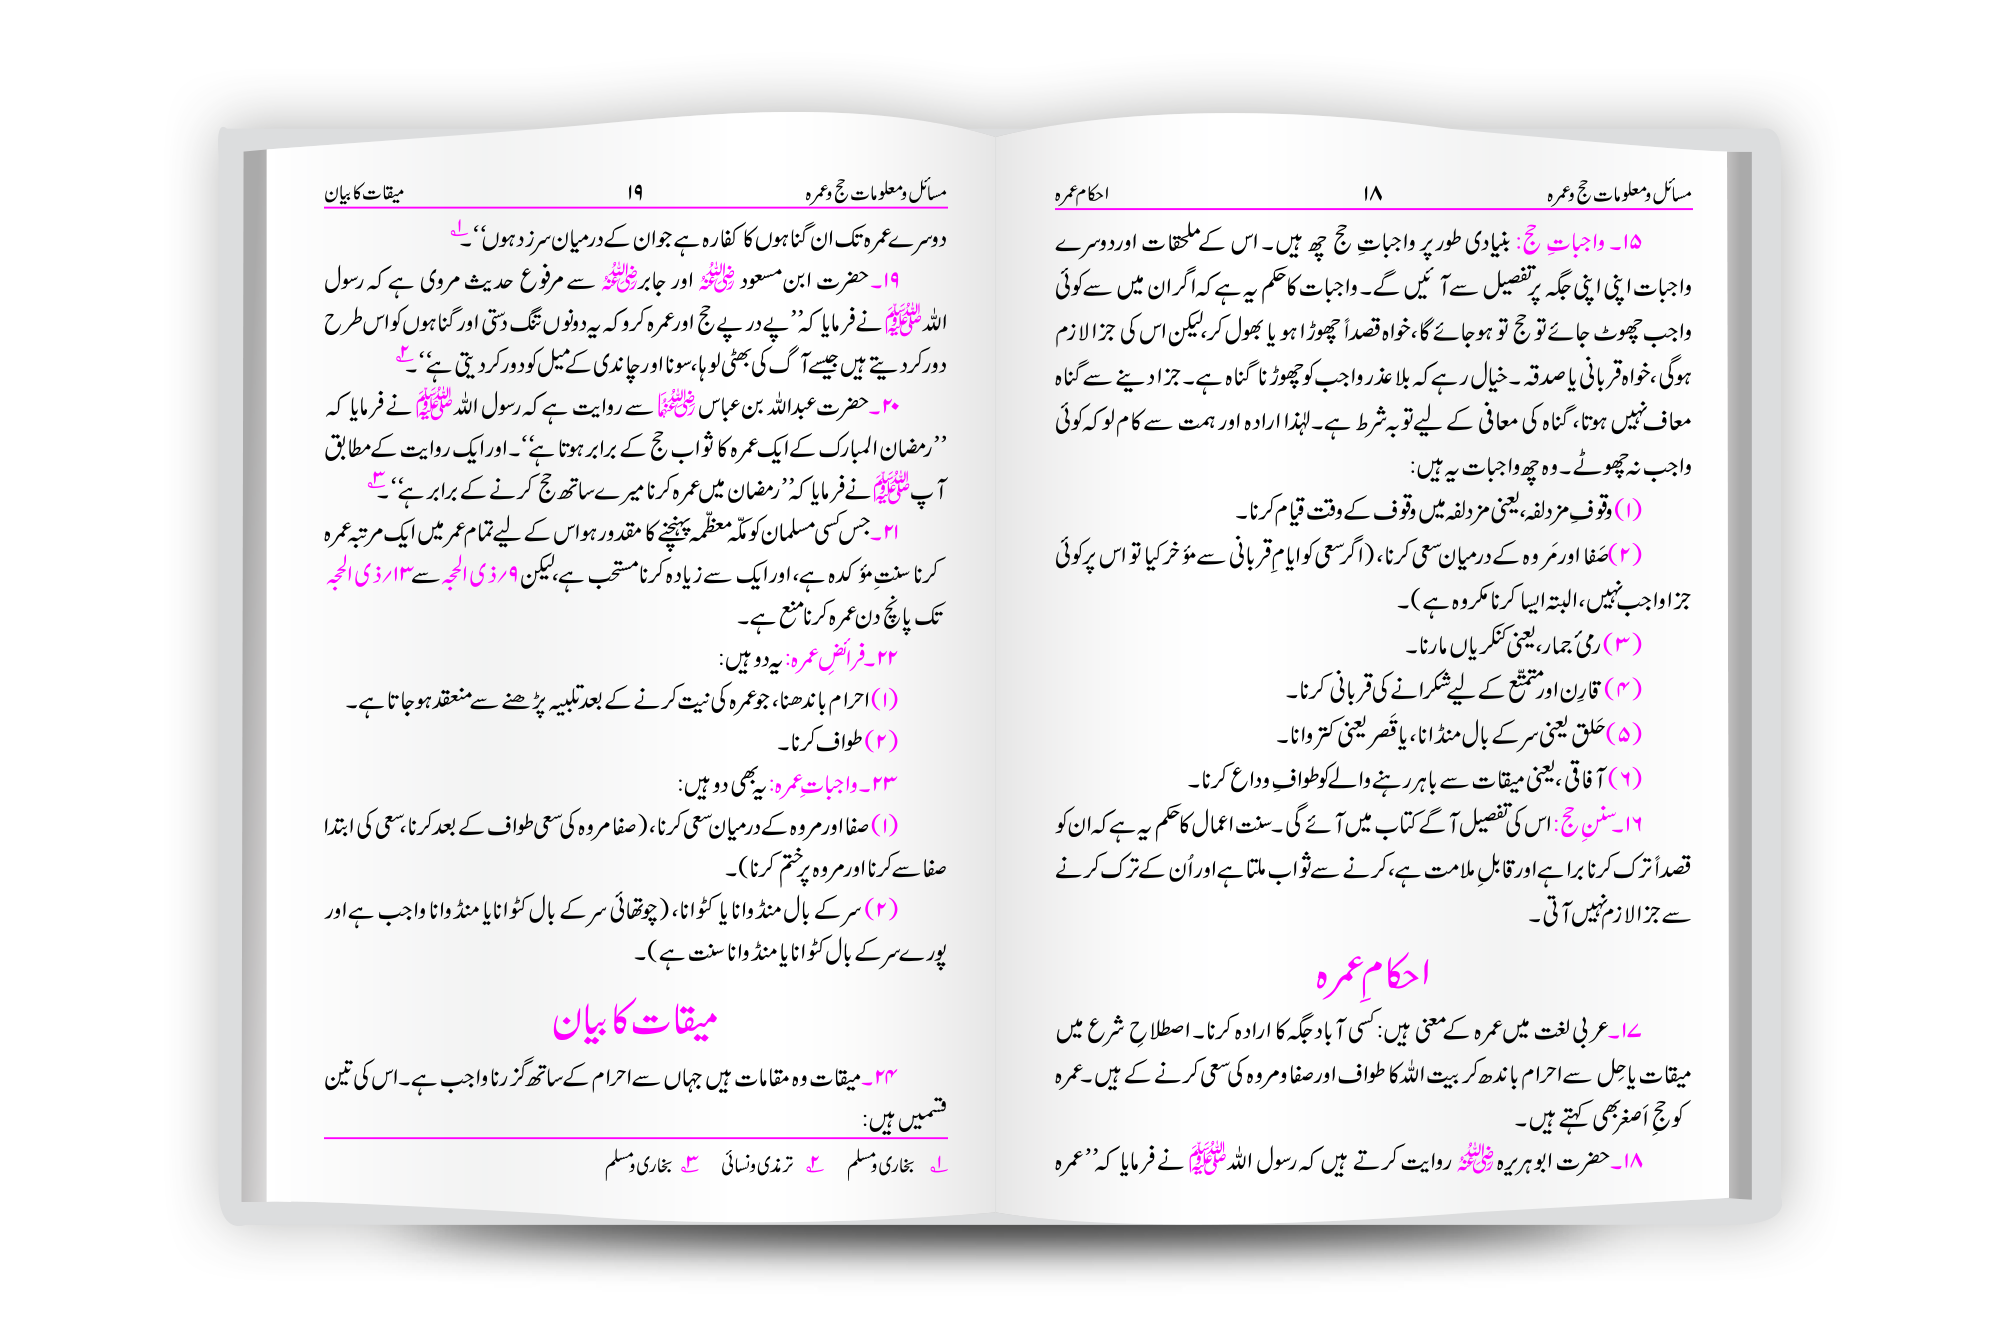 مسائل و معلومات حج و عمرہ ۱۸ احکام عمرہ
۱۵۔ واجباتِ حج: بنیادی طور پر واجباتِ حج چھ ہیں۔ اس کے ملحقات اور دوسرے
واجبات اپنی اپنی جگہ پر تفصیل سے آئیں گے۔ واجبات کا حکم یہ ہے کہ اگر ان میں سے کوئی
واجب چھوٹ جائے تو حج تو ہوجائے گا، خواہ قصداً چھوڑا ہو یا بھول کر، لیکن اس کی جزا لازم
ہوگی، خواہ قربانی یا صدقہ۔ خیال رہے کہ بلا عذر واجب کو چھوڑنا گناہ ہے۔ جزا دینے سے گناہ
معاف نہیں ہوتا، گناہ کی معافی کے لیے توبہ شرط ہے۔ لہٰذا ارادہ اور ہمت سے کام لو کہ کوئی
واجب نہ چھوٹے۔ وہ چھ واجبات یہ ہیں:
(۱) وقوفِ مزدلفہ، یعنی مزدلفہ میں وقوف کے وقت قیام کرنا۔
(۲) صَفا اور مَروہ کے درمیان سعی کرنا، (اگر سعی کو ایامِ قربانی سے مؤخر کیا تو اس پر کوئی
جزا واجب نہیں، البتہ ایسا کرنا مکروہ ہے)۔
(۳) رمیٔ جمار، یعنی کنکریاں مارنا۔
(۴) قارِن اور متمتّع کے لیے شکرانے کی قربانی کرنا۔
(۵) حَلق یعنی سر کے بال منڈانا، یا قَصر یعنی کتروانا۔
(۶) آفاقی، یعنی میقات سے باہر رہنے والے کو طوافِ وداع کرنا۔
۱۶۔ سننِ حج: اس کی تفصیل آگے کتاب میں آئے گی۔ سنت اعمال کا حکم یہ ہے کہ ان کو
قصداً ترک کرنا برا ہے اور قابلِ ملامت ہے، کرنے سے ثواب ملتا ہے اور اُن کے ترک کرنے
سے جزا لازم نہیں آتی۔
احکامِ عمرہ
۱۷۔ عربی لغت میں عمرہ کے معنی ہیں: کسی آباد جگہ کا ارادہ کرنا۔ اصطلاحِ شرع میں
میقات یا حِل سے احرام باندھ کر بیت اللہ کا طواف اور صفا و مروہ کی سعی کرنے کے ہیں۔ عمرہ
کو حجِ اَصغر بھی کہتے ہیں۔
۱۸۔ حضرت ابو ہریرہ رضی اللہ عنہ روایت کرتے ہیں کہ رسول اللہ ﷺ نے فرمایا کہ ’’عمرہ
مسائل و معلومات حج و عمرہ ۱۹ میقات کا بیان
دوسرے عمرہ تک ان گناہوں کا کفارہ ہے جو ان کے درمیان سرزد ہوں‘‘۔ ۱؎
۱۹۔ حضرت ابن مسعود رضی اللہ عنہ اور جابر رضی اللہ عنہ سے مرفوع حدیث مروی ہے کہ رسول
اللہ ﷺ نے فرمایا کہ ’’پے در پے حج اور عمرہ کرو کہ یہ دونوں تنگ دستی اور گناہوں کو اس طرح
دور کردیتے ہیں جیسے آگ کی بھٹی لوہا، سونا اور چاندی کے میل کو دور کردیتی ہے‘‘۔ ۲؎
۲۰۔ حضرت عبداللہ بن عباس رضی اللہ عنہما سے روایت ہے کہ رسول اللہ ﷺ نے فرمایا کہ
’’رمضان المبارک کے ایک عمرہ کا ثواب حج کے برابر ہوتا ہے‘‘۔ اور ایک روایت کے مطابق
آپ ﷺ نے فرمایا کہ ’’رمضان میں عمرہ کرنا میرے ساتھ حج کرنے کے برابر ہے‘‘۔ ۳؎
۲۱۔ جس کسی مسلمان کو مکّہ معظّمہ پہنچنے کا مقدور ہو اس کے لیے تمام عمر میں ایک مرتبہ عمرہ
کرنا سنتِ مؤکدہ ہے، اور ایک سے زیادہ کرنا مستحب ہے، لیکن ۹/ذی الحجہ سے ۱۳/ذی الحجہ
تک پانچ دن عمرہ کرنا منع ہے۔
۲۲۔ فرائضِ عمرہ: یہ دو ہیں:
(۱) احرام باندھنا، جو عمرہ کی نیت کرنے کے بعد تلبیہ پڑھنے سے منعقد ہوجاتا ہے۔
(۲) طواف کرنا۔
۲۳۔ واجباتِ عمرہ: یہ بھی دو ہیں:
(۱) صفا اور مروہ کے درمیان سعی کرنا، (صفا مروہ کی سعی طواف کے بعد کرنا، سعی کی ابتدا
صفا سے کرنا اور مروہ پر ختم کرنا)۔
(۲) سر کے بال منڈوانا یا کٹوانا، (چوتھائی سر کے بال کٹوانا یا منڈوانا واجب ہے اور
پورے سر کے بال کٹوانا یا منڈوانا سنت ہے)۔
میقات کا بیان
۲۴۔ میقات وہ مقامات ہیں جہاں سے احرام کے ساتھ گزرنا واجب ہے۔ اس کی تین
قسمیں ہیں:
۱؎ بخاری و مسلم ۲؎ ترمذی و نسائی ۳؎ بخاری و مسلم